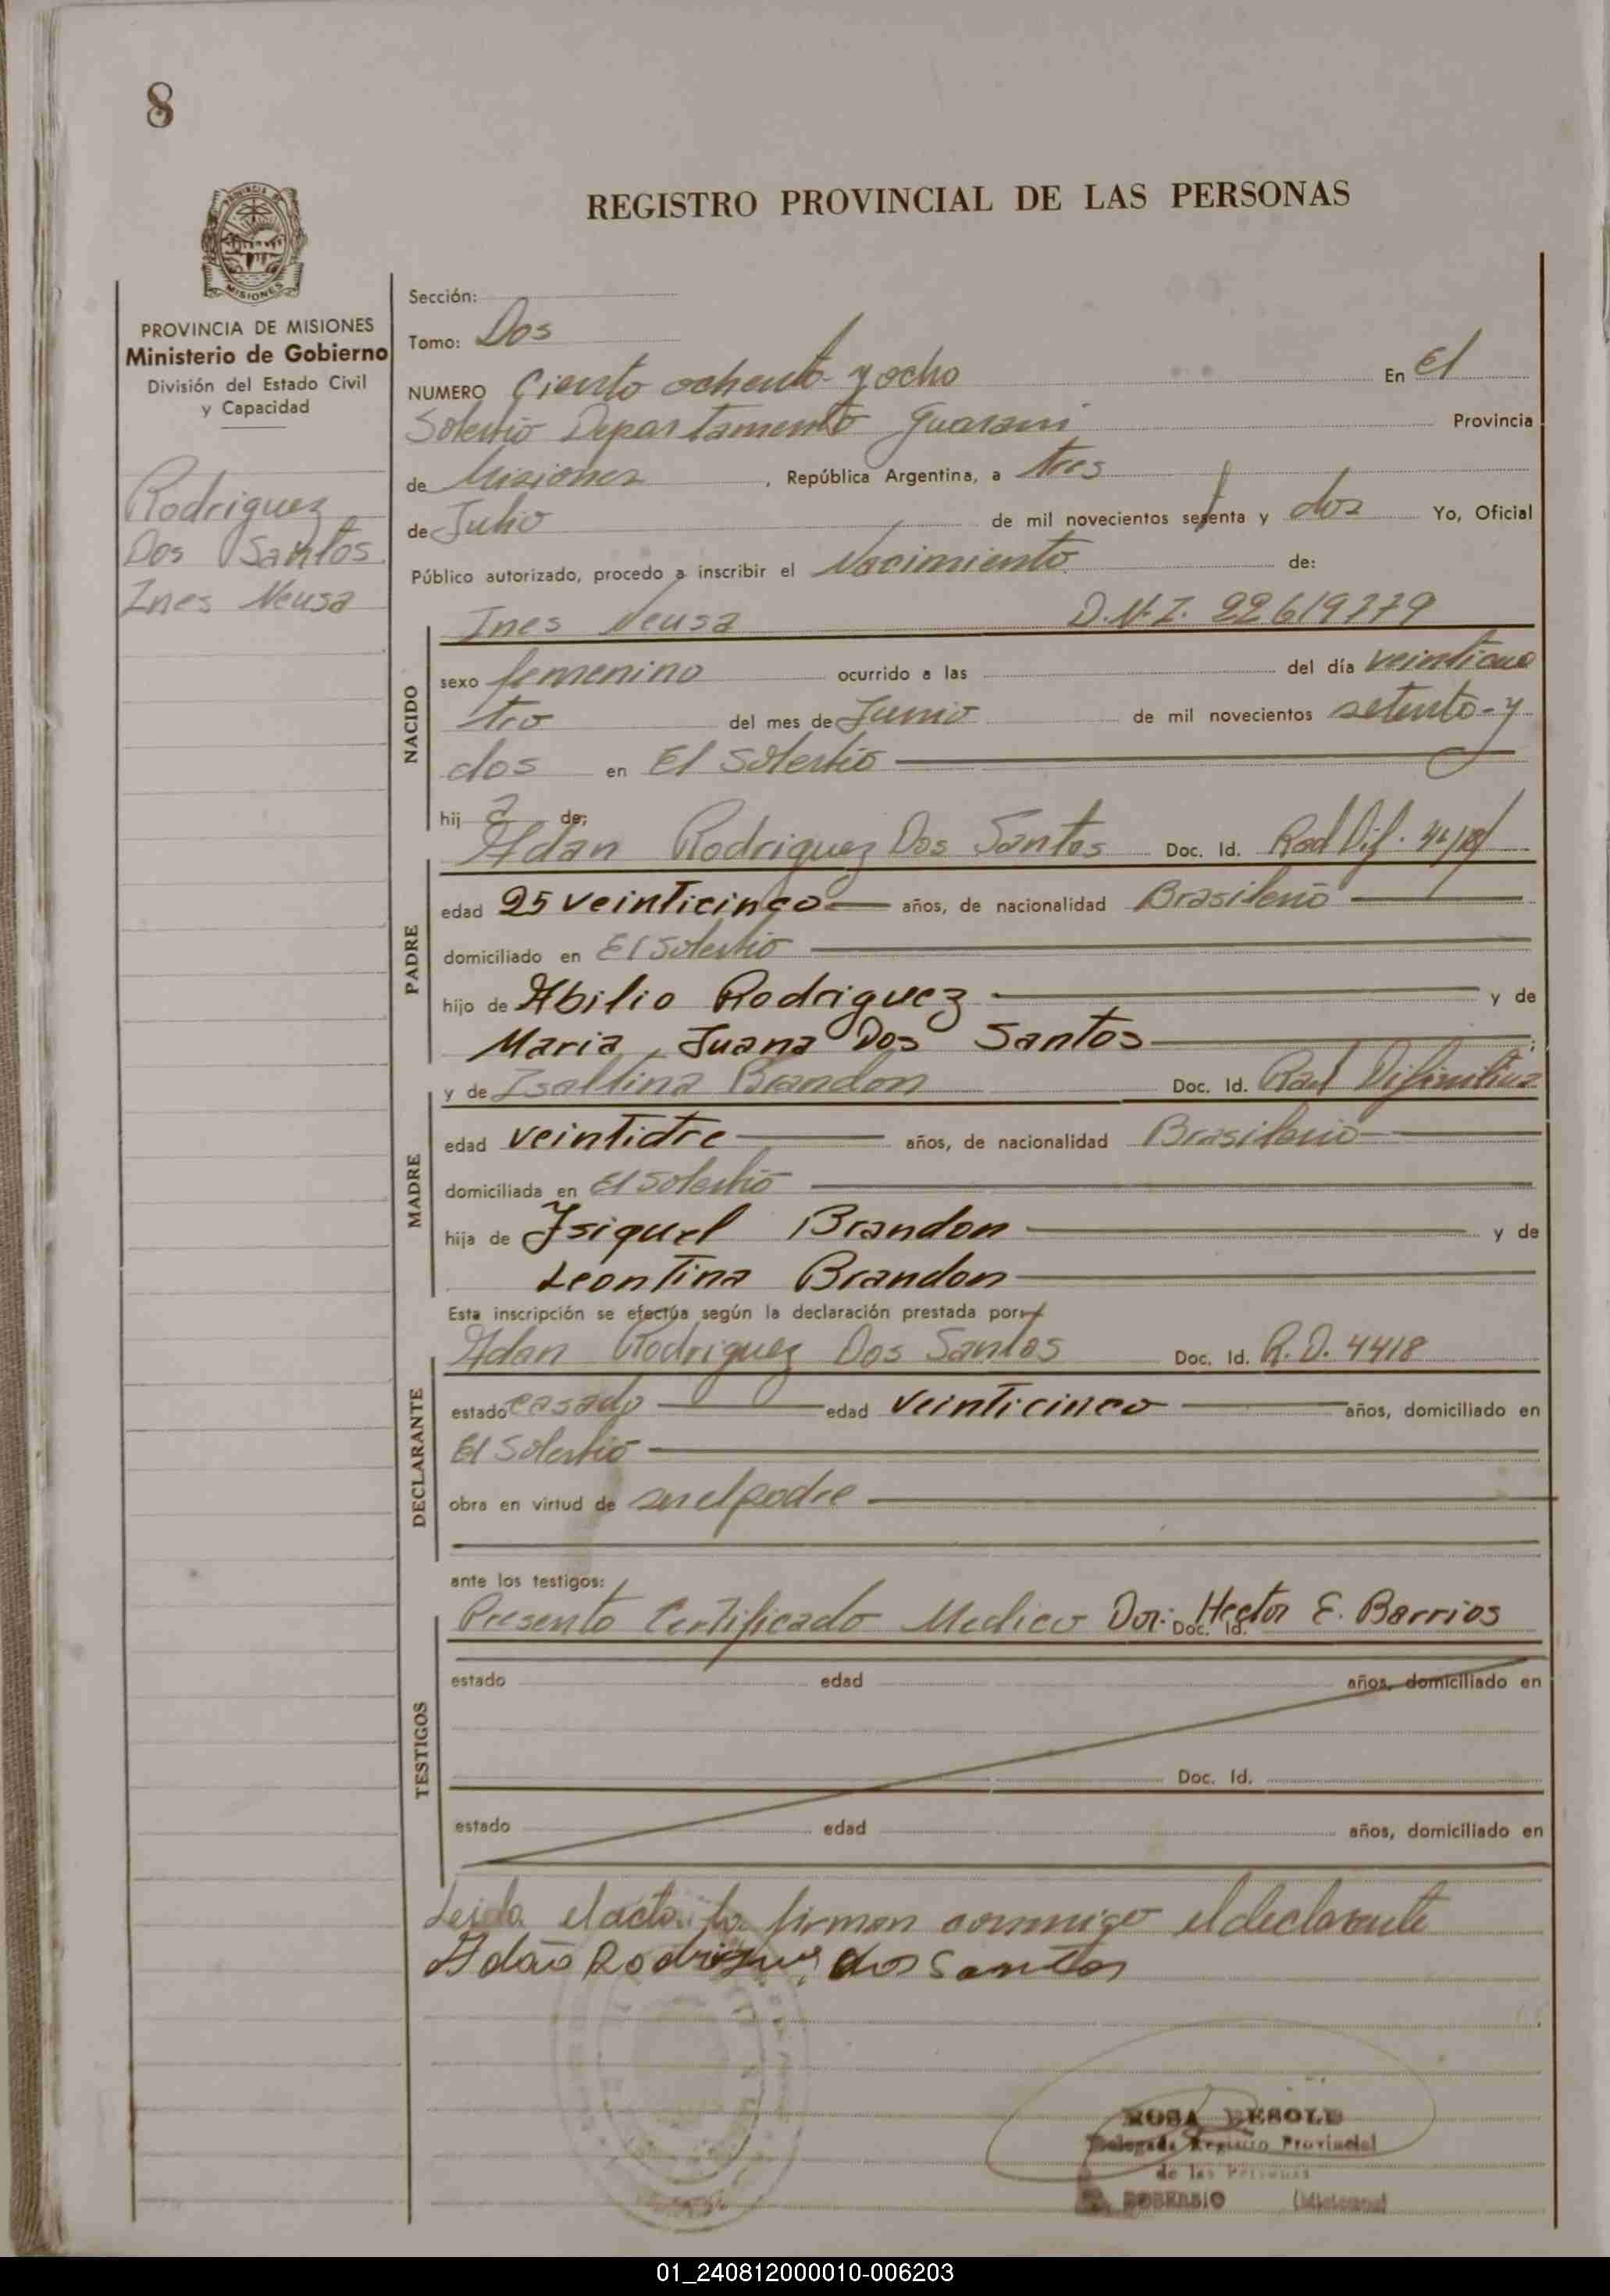 8
REGISTRO PROVINCIAL DE LAS PERSONAS
PROVINCIA DE MISIONES
Ministerio de Gobierno
División del Estado Civil
y Capacidad
Rodriguez
Dos Santos
Ines Neusa
Sección:
Tomo: Dos
NUMERO Ciento ochenta y ocho En El
Soberbio Departamento Guarani Provincia
de Misiones, República Argentina, a tres
de Julio de mil novecientos setenta y dos Yo, Oficial
Público autorizado, procedo a inscribir el Nacimiento de:
Ines Neusa D.N.I. 22619779
NACIDO
sexo femenino ocurrido a las del día veinticua
tro del mes de Junio de mil novecientos setenta y
dos en El Soberbio
hij a de:
PADRE
Adan Rodriguez Dos Santos Doc. Id. Rad Dif.
edad 25 veinticinco años, de nacionalidad Brasileño
domiciliado en El Soberbio
hijo de Abilio Rodriguez y de
Maria Juana Dos Santos
MADRE
y de Isaltina Brandon Doc. Id. Rad Difinitiva
edad veintidre años, de nacionalidad Brasileño
domiciliada en El Soberbio
hija de Isiquel Brandon y de
Leontina Brandon
Esta inscripción se efectúa según la declaración prestada por
DECLARANTE
Adan Rodriguez Dos Santos Doc. Id. R.D. 4418
estado casado edad veinticinco años, domiciliado en
El Soberbio
obra en virtud de ser el padre
ante los testigos:
TESTIGOS
Presento Certificado Medico Dor: Doc. Id. Hector E. Barrios
estado edad años, domiciliado en
Doc. Id.
estado edad años, domiciliado en
Leida el acta la firman conmigo el declarante
Adão Rodrigues dos Santos
ROSA BESOLD
Delegada Registro Provincial
de las Personas
SOBERBIO (Misiones)
01_240812000010-006203